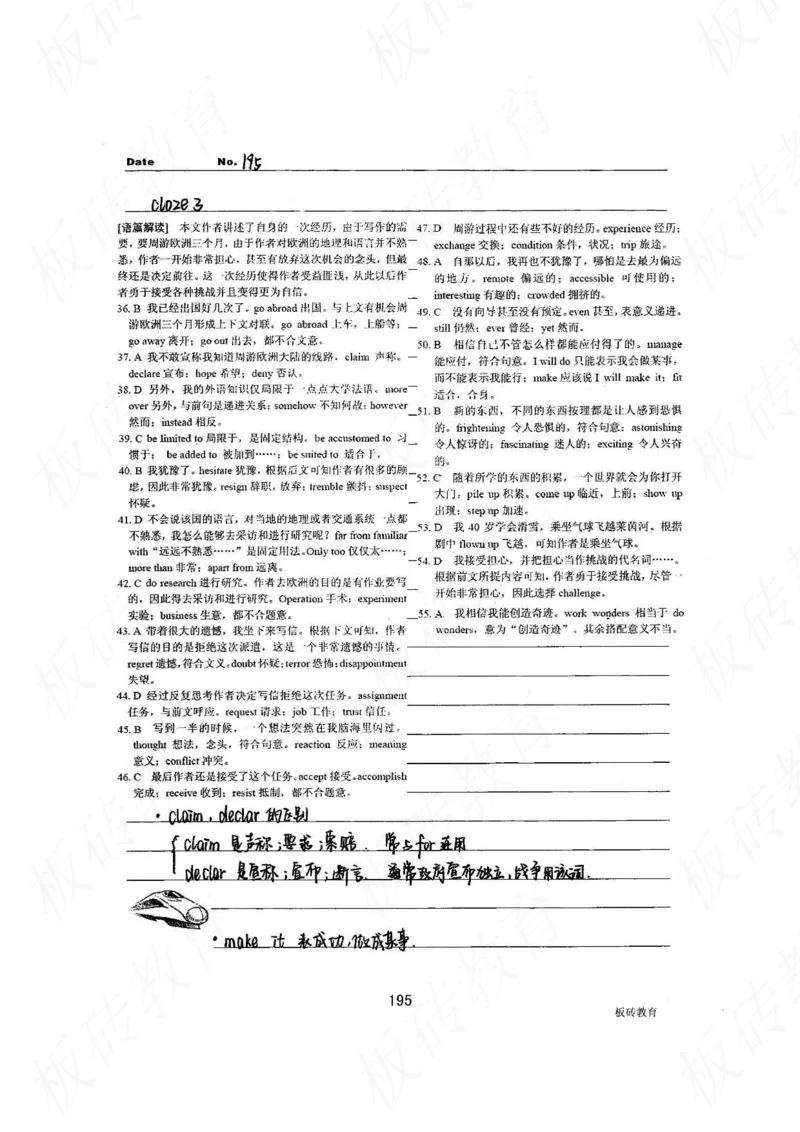 Date No. 195
cloze 3
[语篇解读] 本文作者讲述了自身的一次经历，由于写作的需
要，要周游欧洲三个月，由于作者对欧洲的地理和语言并不熟
悉，作者一开始非常担心，甚至有放弃这次机会的念头，但最
终还是决定前往。这一次经历使得作者受益匪浅，从此以后作
者勇于接受各种挑战并且变得更为自信。
36. B 我已经出国好几次了。go abroad 出国。与上文有机会周
游欧洲三个月形成上下文对联。go abroad 上车，上船等；
go away 离开；go out 出去，都不合文意。
37. A 我不敢宣称我知道周游欧洲大陆的线路。claim 声称。
declare 宣布；hope 希望；deny 否认。
38. D 另外，我的外语知识仅局限于一点点大学法语。more
over 另外，与前句是递进关系；somehow 不知何故；however
然而；instead 相反。
39. C be limited to 局限于，是固定结构。be accustomed to 习
惯于； be added to 被加到……；be suited to 适合于。
40. B 我犹豫了。hesitate 犹豫，根据后文可知作者有很多的顾
虑，因此非常犹豫。resign 辞职，放弃；tremble 颤抖；suspect
怀疑。
41. D 不会说该国的语言，对当地的地理或者交通系统一点都
不熟悉，我怎么能够去采访和进行研究呢？far from familiar
with“远远不熟悉……”是固定用法。Only too 仅仅太……；
more than 非常；apart from 远离。
42. C do research 进行研究。作者去欧洲的目的是有作业要写
的，因此得去采访和进行研究。Operation 手术；experiment
实验；business 生意，都不合题意。
43. A 带着很大的遗憾，我坐下来写信。根据下文可知，作者
写信的目的是拒绝这次派遣，这是一个非常遗憾的事情。
regret 遗憾，符合文义。doubt 怀疑；terror 恐怖；disappointment
失望。
44. D 经过反复思考作者决定写信拒绝这次任务。assignment
任务，与前文呼应。request 请求；job 工作；trust 信任。
45. B 写到一半的时候，一个想法突然在我脑海里闪过。
thought 想法，念头，符合句意。reaction 反应；meaning
意义；conflict 冲突。
46. C 最后作者还是接受了这个任务。accept 接受。accomplish
完成；receive 收到；resist 抵制，都不合题意。
47. D 周游过程中还有些不好的经历。experience 经历；
exchange 交换；condition 条件，状况；trip 旅途。
48. A 自那以后，我再也不犹豫了，哪怕是去最为偏远
的地方。remote 偏远的；accessible 可使用的；
interesting 有趣的；crowded 拥挤的。
49. C 没有向导甚至没有预定。even 甚至，表意义递进。
still 仍然；ever 曾经；yet 然而。
50. B 相信自己不管怎么样都能应付得了的。manage
能应付，符合句意。I will do 只能表示我会做某事，
而不能表示我能行；make 应该说 I will make it；fit
适合、合身。
51. B 新的东西，不同的东西按理都是让人感到恐惧
的。frightening 令人恐惧的，符合句意；astonishing
令人惊讶的；fascinating 迷人的；exciting 令人兴奋
的。
52. C 随着所学的东西的积累，一个世界就会为你打开
大门；pile up 积累。come up 临近，上前；show up
出现；step up 加速。
53. D 我 40 岁学会滑雪，乘坐气球飞越莱茵河。根据
剧中 flown up 飞越，可知作者是乘坐气球。
54. D 我接受担心，并把担心当作挑战的代名词……。
根据前文所提内容可知，作者勇于接受挑战，尽管一
开始非常担心，因此选择 challenge。
55. A 我相信我能创造奇迹。work wonders 相当于 do
wonders，意为“创造奇迹”。其余搭配意义不当。
· claim , declar 的区别
claim 是声称；要求；索赔. 常与for连用
declar 是宣称；宣布；断言. 通常政府宣布独立，战争用该词.
· make it 表成功，做成某事.
195
板砖教育